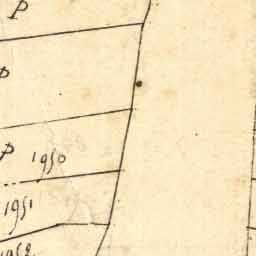 P
P
P 1950
1951
1952